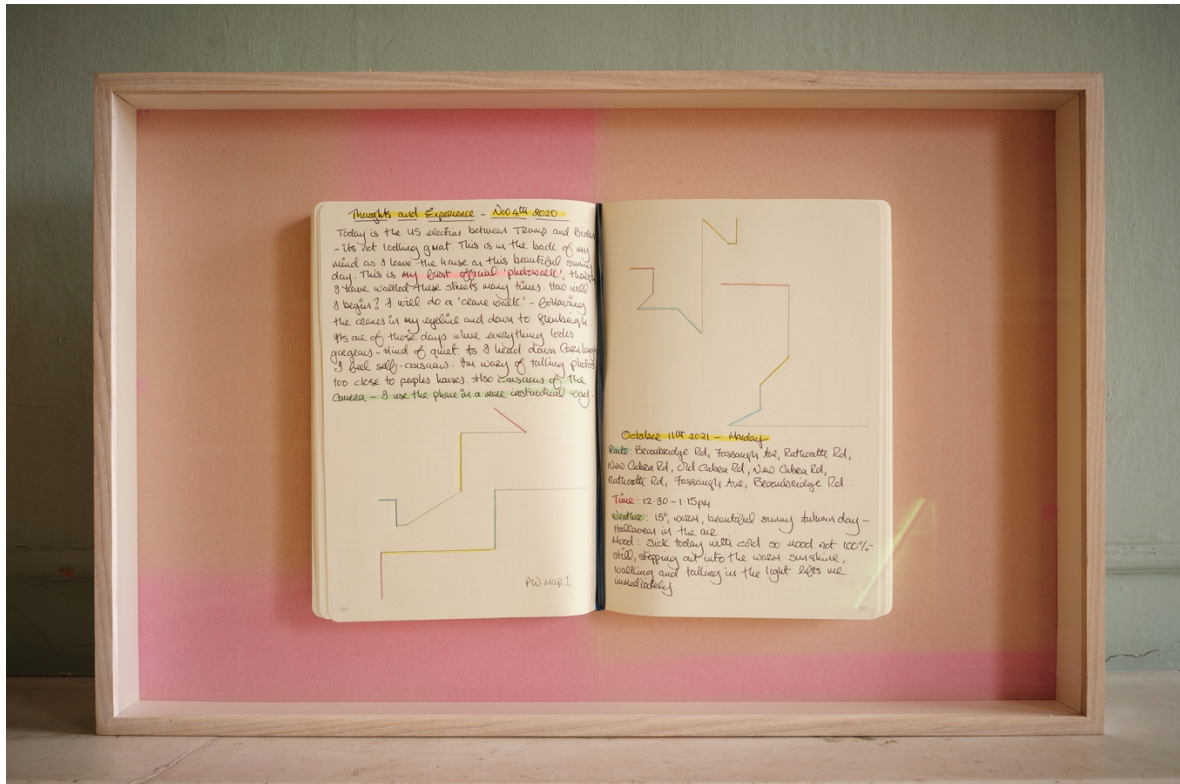 Thoughts and Experience - Nov 4th 2020
Today is the US election between Trump and Biden
- its not looking great. This is in the back of my
mind as I leave the house on this beautiful sunny
day. This is my first official 'photowalk', though
I have walked these streets many times. How will
I begin? I will do a 'crane walk' - following
the cranes in my eyeline and down to
Its one of those days where everything looks
gorgeous - kind of quiet. As I head down
I feel self-conscious. Im wary of taking photos
too close to peoples houses. Also conscious of the
camera - I use the phone in a more instinctual way.
PW map 1
October 11th 2021 - Monday
Route: Broombridge Rd, Fassaugh Ave, Rathoath Rd,
New Cabra Rd, Old Cabra Rd, New Cabra Rd,
Rathoath Rd, Fassaugh Ave, Broombridge Rd.
Time: 12.30 - 1.15pm
Weather: 15°, warm, beautiful sunny Autumn day -
Halloween in the air
Mood: Sick today with cold so mood not 100% -
still, stepping out into the warm sunshine,
walking and taking in the light lifts me
immediately